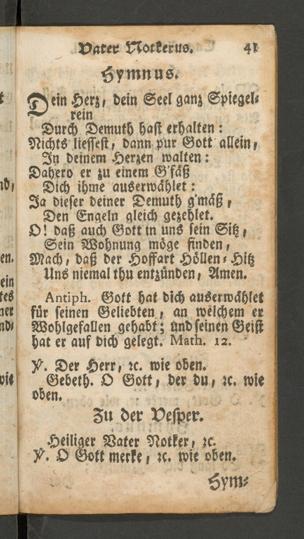 Vater Notkerus. 41
Hymnus.
Dein Herz, dein Seel ganz Spiegel-
rein
Durch Demuth hast erhalten:
Nichts liessest, dann pur Gott allein,
In deinem Herzen walten:
Dahero er zu einem G'fäß
Dich ihme auserwählet:
Ja dieser deiner Demuth g'mäß,
Den Engeln gleich gezehlet.
O! daß auch Gott in uns sein Sitz,
Sein Wohnung möge finden,
Mach, daß der Hoffart Höllen-Hitz
Uns niemal thu entzünden, Amen.
Antiph. Gott hat dich auserwählet
für seinen Geliebten, an welchem er
Wohlgefallen gehabt; und seinen Geist
hat er auf dich gelegt. Math. 12.
℣. Der Herr, ꝛc. wie oben.
Gebeth. O Gott, der du, ꝛc. wie
oben.
Zu der Vesper.
Heiliger Vater Notker, ꝛc.
℣. O Gott merke, ꝛc. wie oben.
Hym-